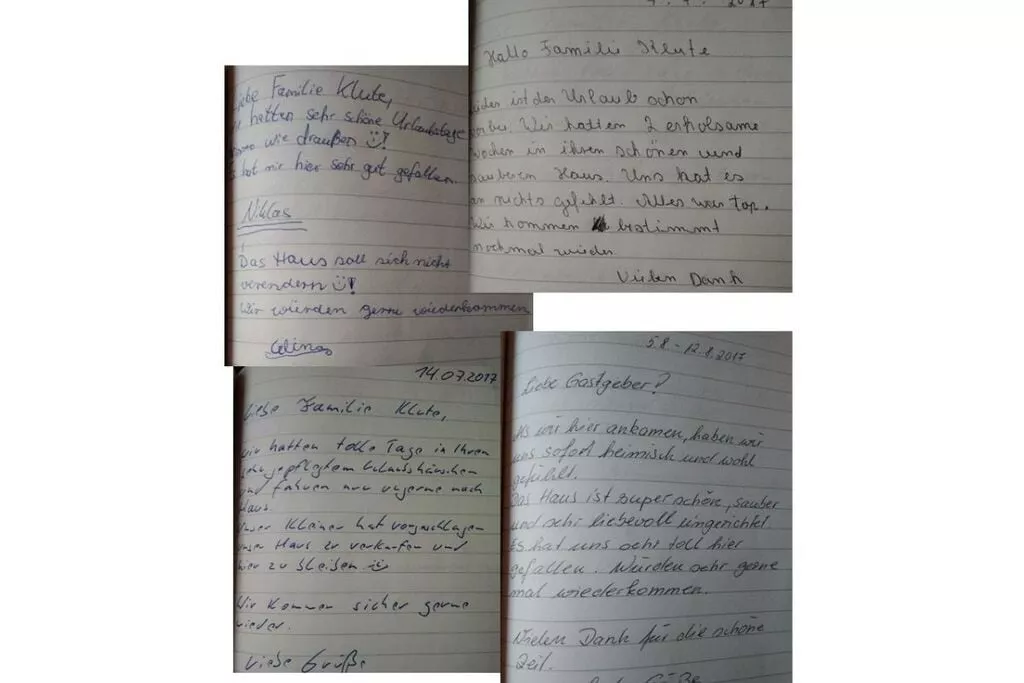 Liebe Familie Klute,
hatten sehr schöne Urlaubstage
wie draußen
hat mir hier sehr gut gefallen.
Niklas
Das Haus soll sich nicht
verendern
Wir würden gerne wiederkommen
Celina
2017
Hallo Familie Klute
leider ist der Urlaub schon
vorbei. Wir hatten 2 erholsame
Wochen in ihrem schönen und
sauberem Haus. Uns hat es
an nichts gefehlt. Alles war top.
Wir kommen bestimmt
nochmal wieder
Vielen Dank
14.07.2017
Liebe Familie Klute,
Wir hatten tolle Tage in Ihrem
sehr gepflegtem Urlaubshäuschen
und fahren nur ungerne nach
Haus.
Unser Kleiner hat vorgeschlagen
unser Haus zu verkaufen und
hier zu bleiben
Wir kommen sicher gerne
wieder.
Liebe Grüße
5.8 - 12.8.2017
Liebe Gastgeber!
Als wir hier ankamen, haben wir
uns sofort heimisch und wohl
gefühlt.
Das Haus ist super schön, sauber
und sehr liebevoll eingerichtet.
Es hat uns sehr toll hier
gefallen. Würden sehr gerne
mal wiederkommen.
Vielen Dank für die schöne
Zeit.